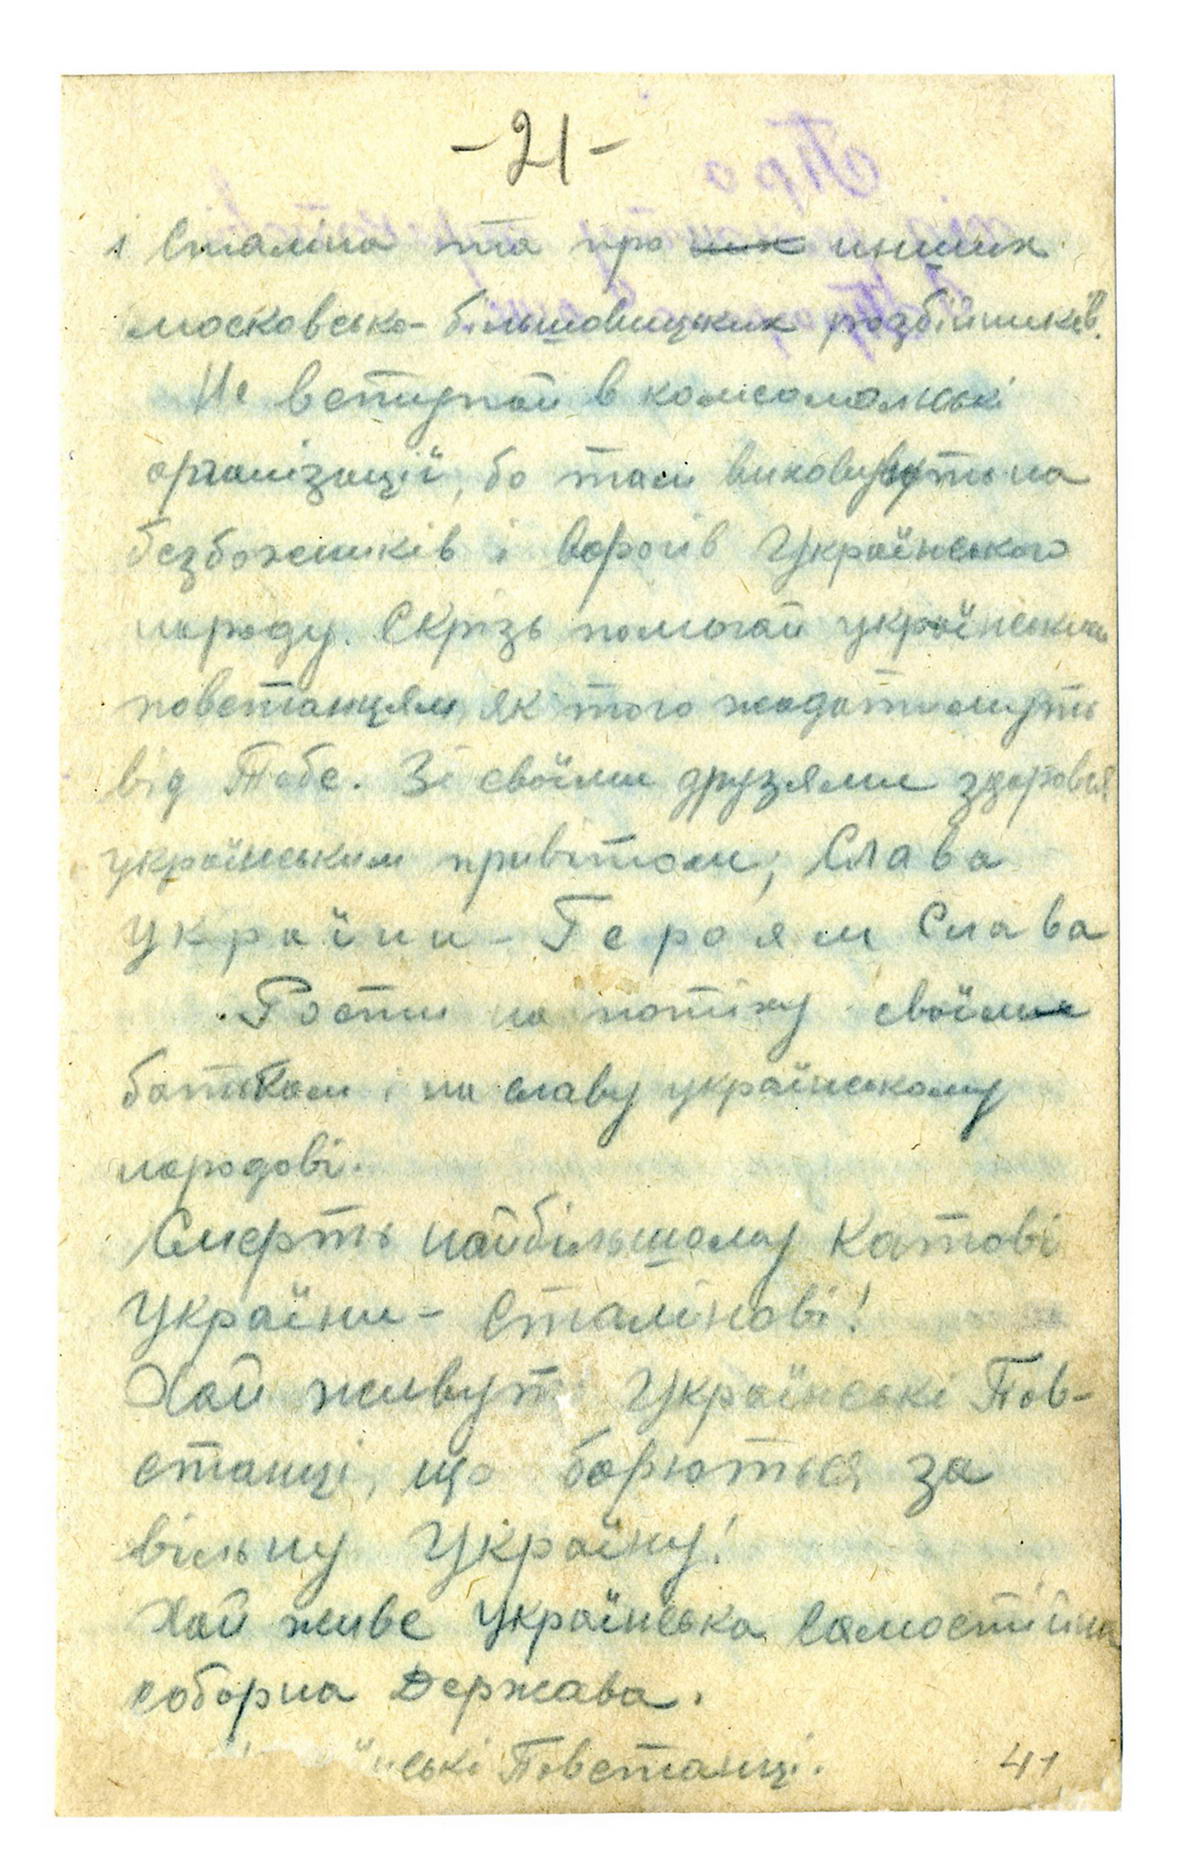 -21-
і Сталіна та про них инших
московсько-більшовицьких розбійників.
Не вступай в комсомольські
організації, бо там виховують на
безбожників і ворогів Українського
народу. Скрізь помогай українським
повстанцям, як того жадатимуть
від Тебе. Зі своїми друзями здоровся
українським привітом; Слава
Україні - Героям Слава
Рости на потіху своїм
батькам і на славу українському
народові.
Смерть найбільшому катові
України - Сталінові!
Хай живуть Українські Пов-
станці, що борються за
вільну Україну!
Хай живе Українська Самостійна
соборна Держава.
їнські Повстанці.
41